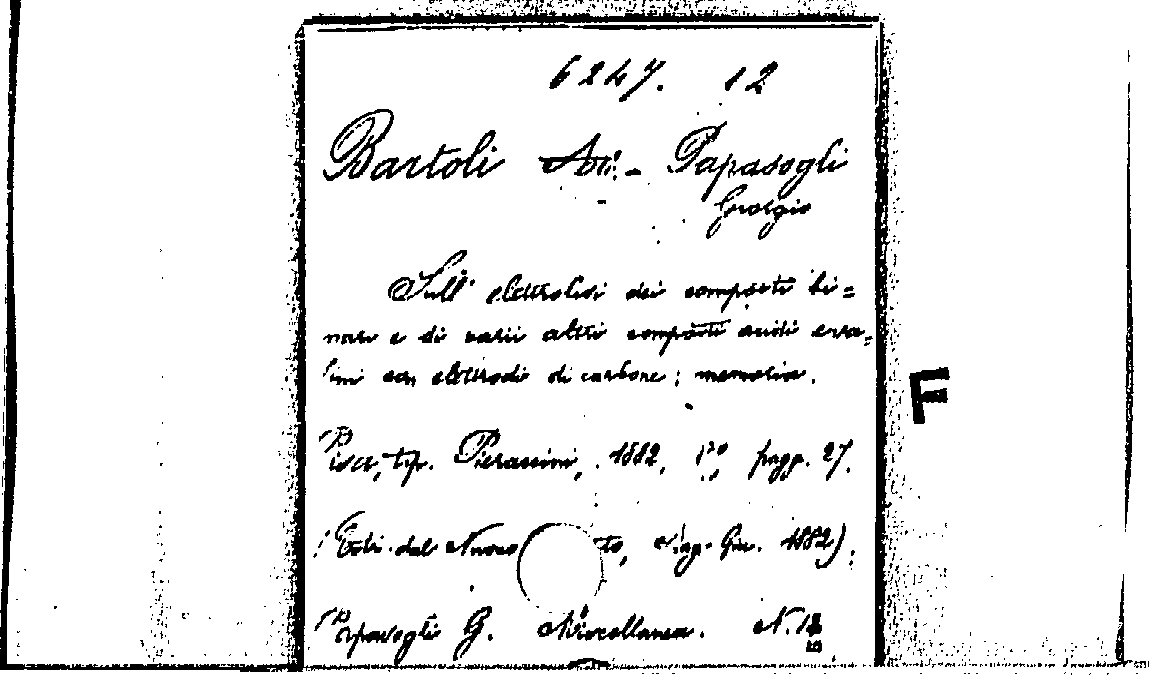 6247. 12
Bartoli Ad. - Papasogli
Giorgio
Sull' elettrolisi dei composti bi=
nari e di varii altri composti acidi e sa=
lini con elettrodi di carbone; memoria.
Pisa, tip. Pieraccini, 1882, 8º pagg. 27.
(Estr. dal Nuovo to, Mag. Giu. 1882).
Papasogli G. Miscellanea. N. 
F